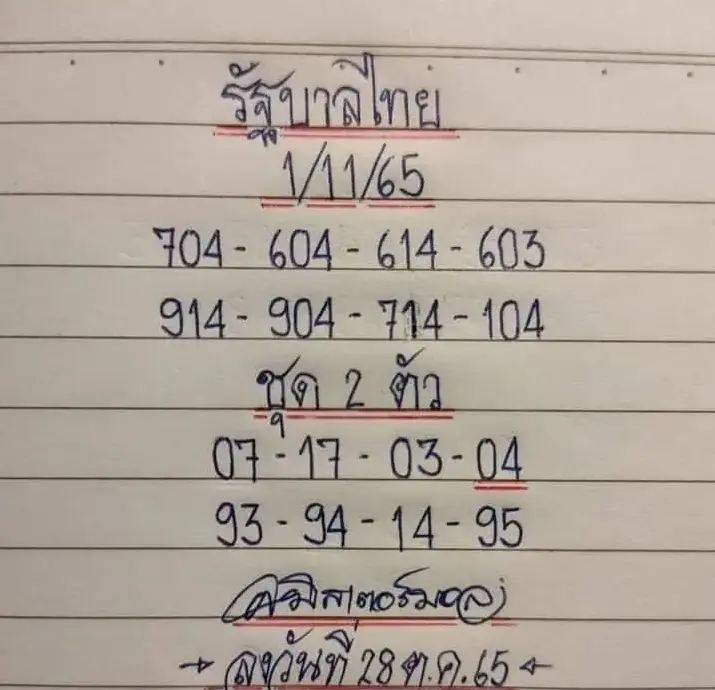 รัฐบาลไทย
1/11/65
704 - 604 - 614 - 603
914 - 904 - 714 - 104
ชุด 2 ตัว
07 - 17 - 03 - 04
93 - 94 - 14 - 95
→ ลงวันที่ 28 ต.ค.65 ←